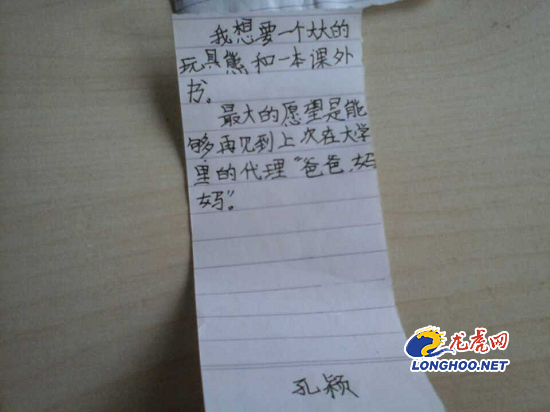 我想要一个大大的
玩具熊和一本课外
书。
最大的愿望是能
够再见到上次在大学
里的代理“爸爸、妈
妈”。
孔颖
龙虎网
LONGHOO.NET